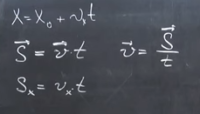 x = x₀ + vₓt
S⃗ = v⃗·t
v⃗ = S⃗/t
Sₓ = vₓ·t